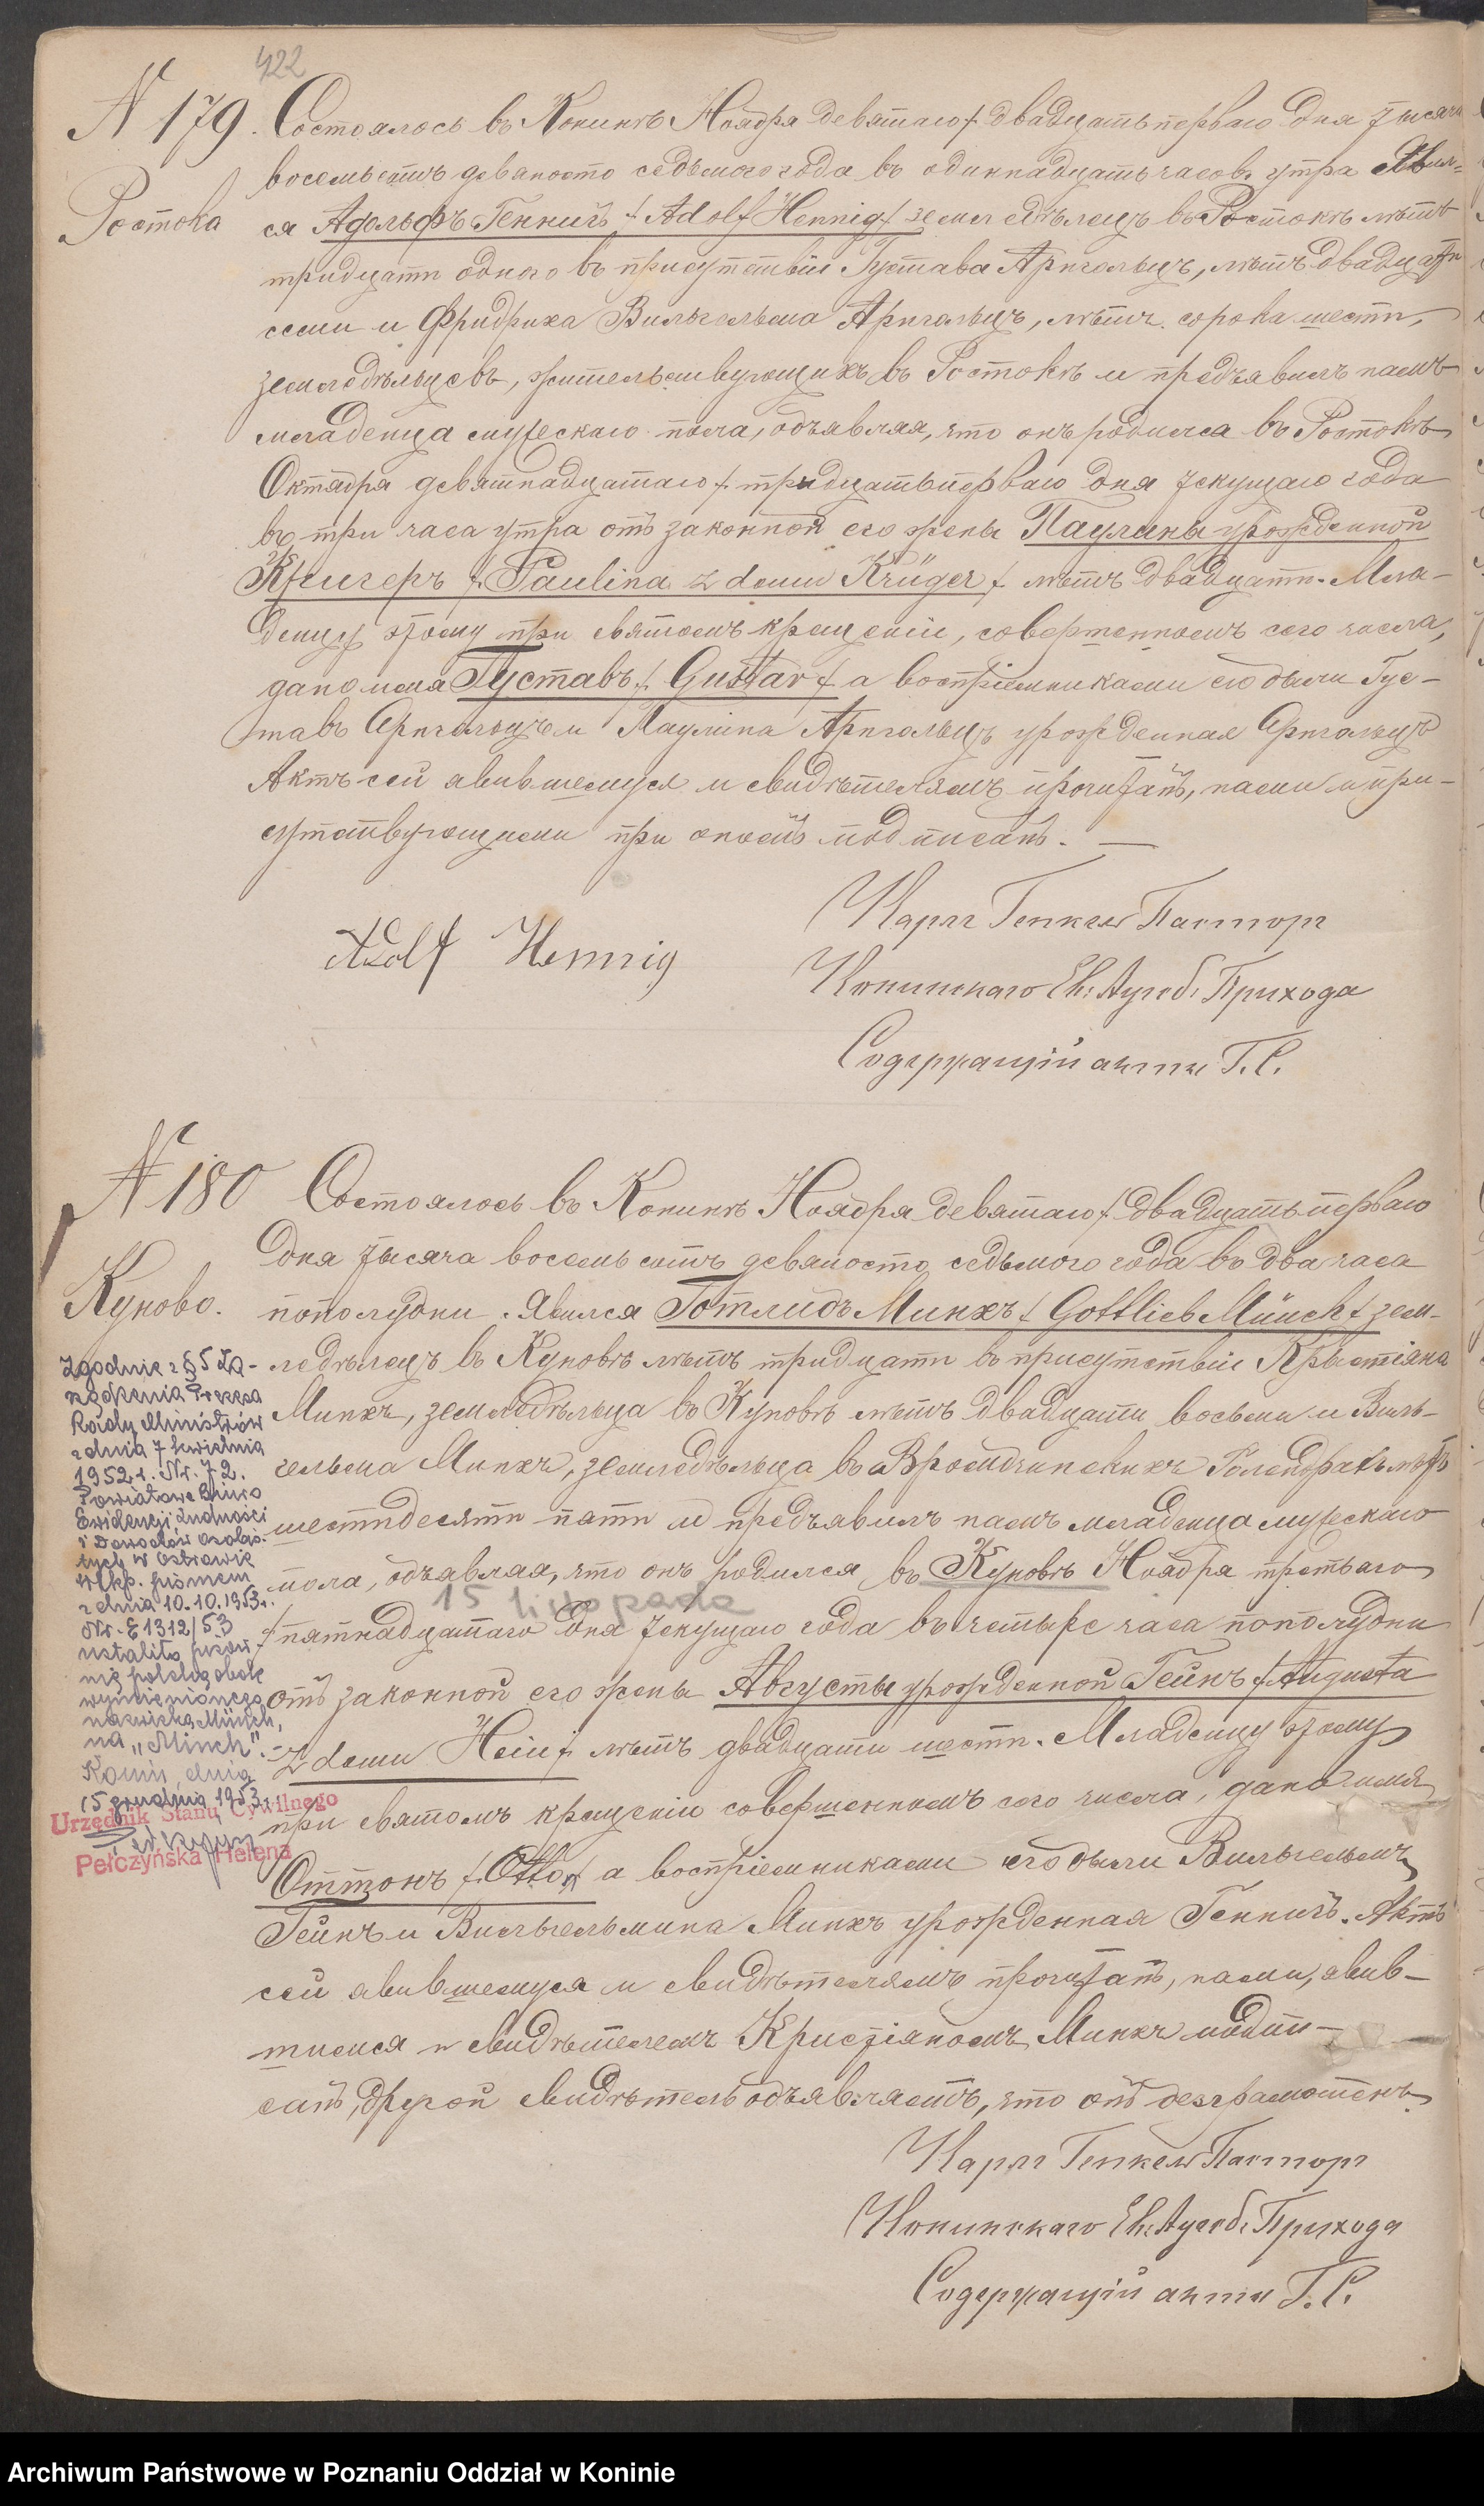 422
N 179. Состоялось въ Конинѣ Ноября девятаго / двадцать перваго дня тысяча
восемьсотъ девяносто седьмого года въ одиннадцать часовъ утра Явил-
Ростока
ся Адольфъ Геннигъ / Adolf Hennig / земледѣлецъ въ Ростокѣ лѣтъ
тридцати одного въ присутствіи Густава Аригольцъ, лѣтъ двадцати
семи и Фридриха Вильгельма Аригольцъ, лѣтъ сорока шести,
земледѣльцевъ, жительствующихъ въ Ростокѣ и предъявилъ намъ
младенца мужескаго пола, объявляя, что онъ родился въ Ростокѣ
Октября девятнадцатаго / тридцать перваго дня текущаго года
въ три часа утра отъ законной его жены Паулины урожденной
Кригеръ / Paulina z domu Krüger / лѣтъ двадцати. Мла-
денцу этому при святомъ крещеніи, совершенномъ сего числа,
дано имя Густавъ / Gustav / а воспріемниками его были Гус-
тавъ Аригольцъ и Паулина Аригольцъ урожденная Аригольцъ
Актъ сей явившемуся и свидѣтелямъ прочитанъ, нами и при-
сутствующими при ономъ подписанъ. —
Adolf Hennig
Карлъ Генкель Пасторъ
Конинскаго Ев: Аугсб: Прихода
Содержащій акты Г. С.
N 180 Состоялось въ Конинѣ Ноября девятаго / двадцать перваго
дня тысяча восемьсотъ девяносто седьмого года въ два часа
Куново.
пополудни. Явился Готлибъ Минхъ / Gottlieb Münch / зем-
ледѣлецъ въ Куновѣ лѣтъ тридцати въ присутствіи Крыстіяна
Минхъ, земледѣльца въ Куновѣ лѣтъ двадцати восьми и Виль-
гельма Минхъ, земледѣльца въ Голендрахъ лѣтъ
шестидесяти пяти и предъявилъ намъ младенца мужескаго
пола, объявляя, что онъ родился въ Куновѣ Ноября третьяго
15 listopada
/ пятнадцатаго дня текущаго года въ четыре часа пополудни
отъ законной его жены Августы урожденной Гейнъ / Augusta
z domu Hein / лѣтъ двадцати шести. Младенцу этому
при святомъ крещеніи совершенномъ сего числа, дано имя
Оттонъ / Otto / а воспріемниками его были Вильгельмъ
Гейнъ и Вильгельмина Минхъ урожденная Геннигъ. Актъ
сей явившемуся и свидѣтелямъ прочитанъ, нами, явив-
шимся и свидѣтелемъ Кристіяномъ Минхъ подпи-
санъ, другой свидѣтель объявляетъ, что онъ безграмотенъ.
Карлъ Генкель Пасторъ
Конинскаго Ев: Аугсб: Прихода
Содержащій акты Г. С.
Zgodnie z § 5 Za-
rządzenia Prezesa
Rady Ministrów
z dnia 7 kwietnia
1952 r. Nr. 72.
Powiatowe Biuro
Ewidencji Ludności
i Dowodów Osobis-
tych w Ostrowie
Wlkp. pismem
z dnia 10.10.1953 r.
Nr. E 1312/53
ustaliło pisow-
nię polską obok
wymienionego
nazwiska Münch,
na „Minch”. -
Konin, dnia
15 grudnia 1953 r.
Urzędnik Stanu Cywilnego
Pełczyńska Helena
Archiwum Państwowe w Poznaniu Oddział w Koninie